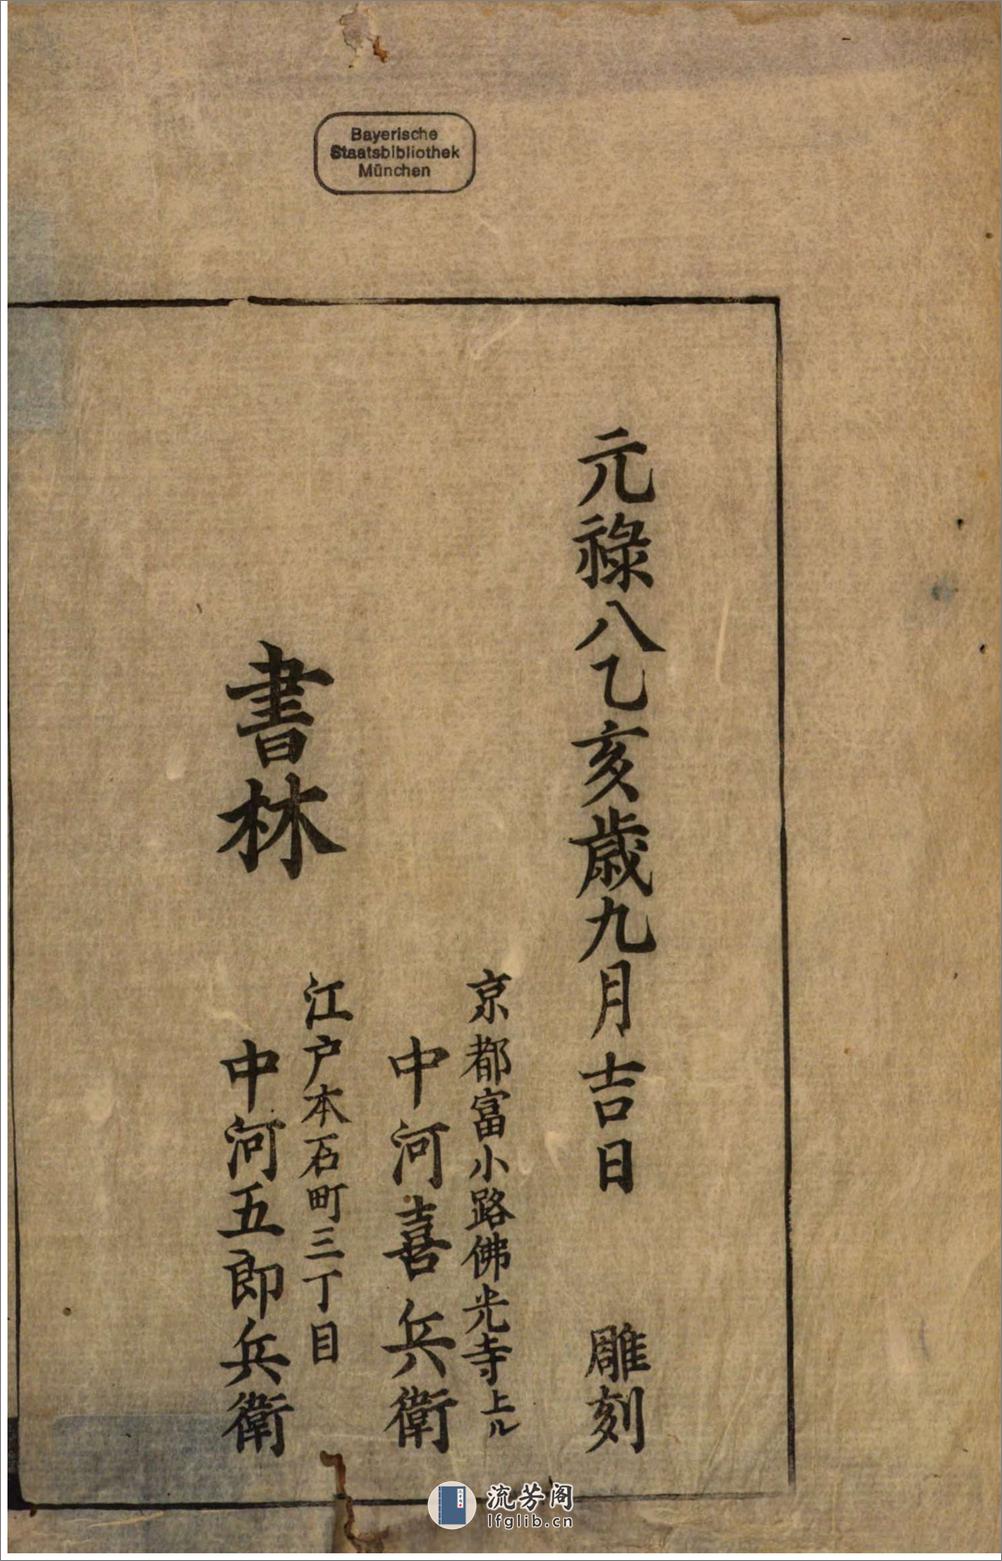 Bayerische
Staatsbibliothek
München
元祿八乙亥歲九月吉日 雕刻
京都富小路佛光寺上ル
中河喜兵衛
江戶本石町三丁目
中河五郎兵衛
書林
流芳阁
lfglib.cn